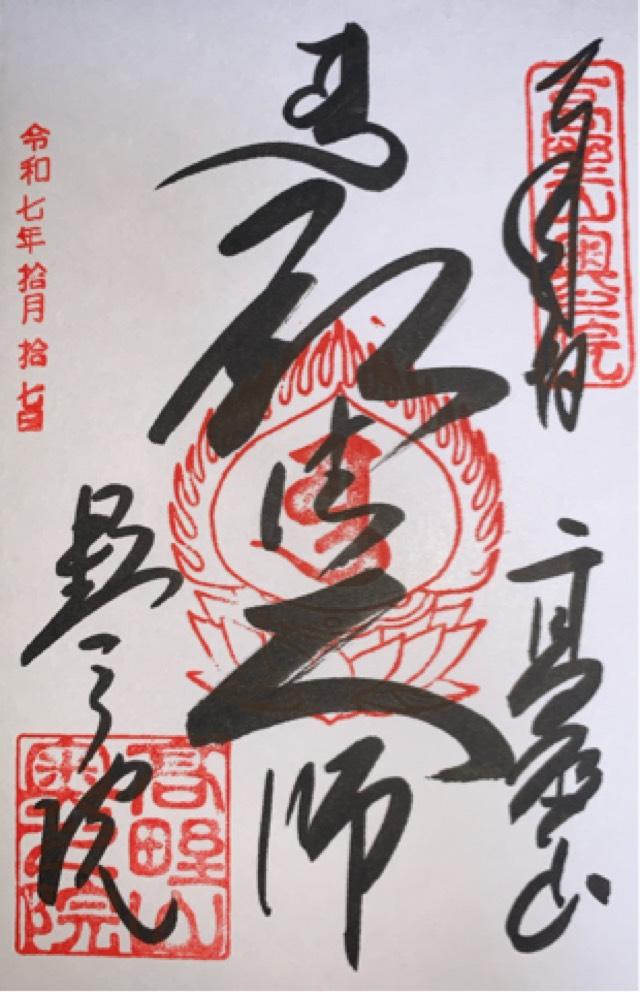 高野山奥之院
奉拝
高野山
大師
令和七年拾月拾七日
奥之院
高野山
奥之院